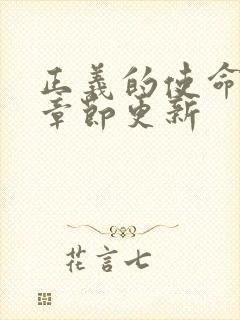 正義的使命
章節更新
花言七